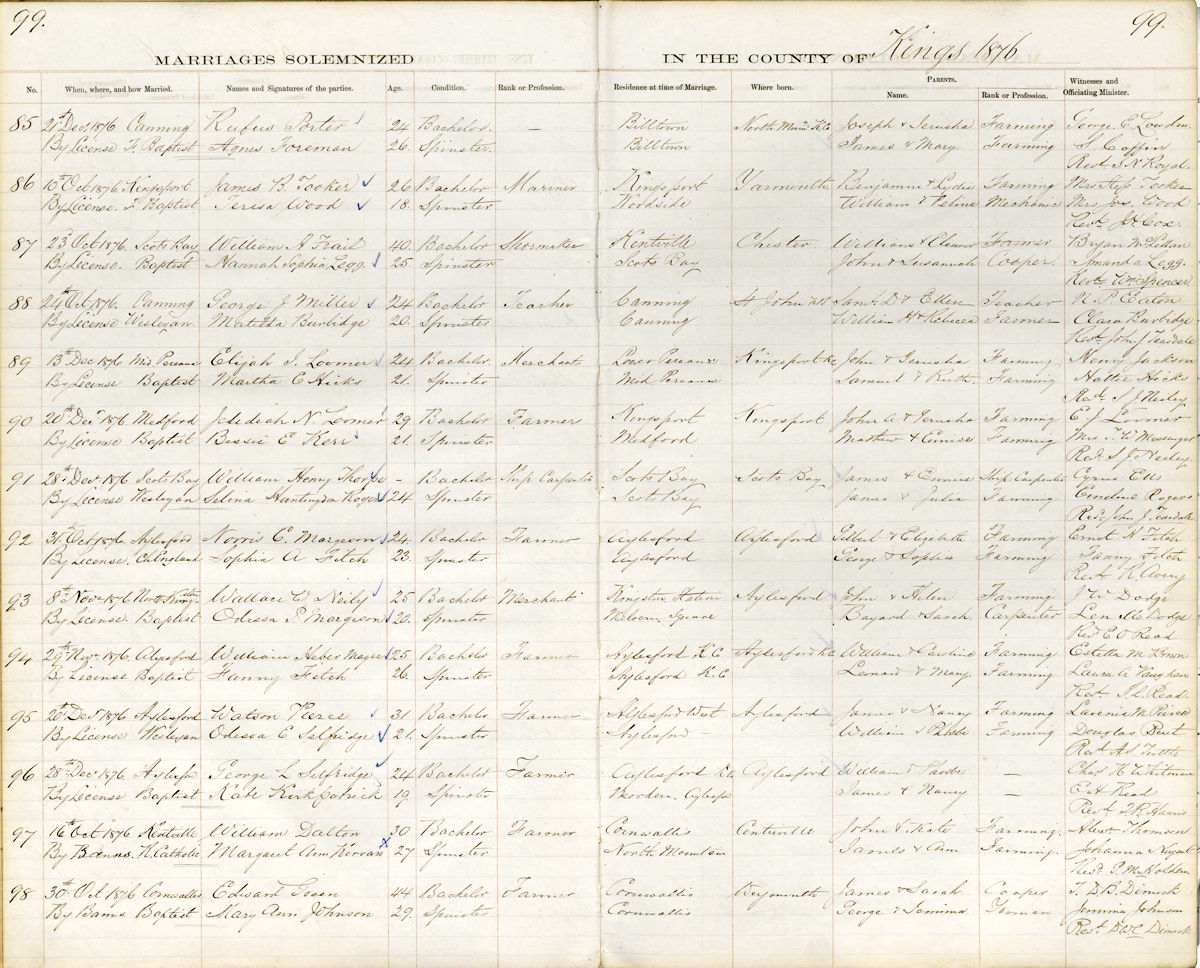 99.
99.
MARRIAGES SOLEMNIZED
IN THE COUNTY OF Kings 1876
No. When, where, and how Married. Names and Signatures of the parties. Age. Condition. Rank or Profession. Residence at time of Marriage. Where born. PARENTS. Name. Rank or Profession. Witnesses and Officiating Minister.
85 21st Dec 1876 Canning Rufus Porter 24 Bachelor. - Billtown North Mtn K.C. Joseph & Jerusha Farming George E. Lowdon
By License F. Baptist Agnes Foreman 26. Spinster. Billtown James & Mary. Farming S. Coffin
Revd. I. N. Royal
86 10th Oct 1876 Kingsport James B. Tooker 26 Bachelor Mariner Kingsport Yarmouth Benjamin & Lydia Farming Mrs Tooker
By License. F. Baptist Teresa Wood 18. Spinster Woodside William & Mechanic Mrs Jos. Wood
Revd. J. Cox.
87 23 Oct 1876. Scots Bay William A Trail 40. Bachelor Shoemaker Kentville Chester. William & Eleanor Farmer Bryan
By License. Baptist Hannah Sophia Legg. 25. Spinster Scots Bay John & Susannah Cooper. Amanda Legg.
Revd. Wm. Spencer.
88 24th Oct. 1876. Canning George J Miller 24 Bachelor Teacher Canning St John NB Saml D. & Ellen Teacher N. P. Eaton
By License Wesleyan. Matilda Burbidge 20. Spinster Canning William H & Rebecca Farmer Clara Burbidge
Revd. John J. Teasdale
89 13th Dec 1876 Mid Pereaux Elijah I. Loomer 24 Bachelor Merchant Lower Pereaux Kingsport Kc John & Jerusha Farming Henry Jackson
By License Baptist Martha E Hicks 21. Spinster Mid Pereaux Samuel & Ruth. Farming Hatter Hicks
Revd. S. J. Neiley
90 20th Dec 1876 Medford Jedediah N. Loomer 29 Bachelor Farmer Kingsport Kingsport John A & Jerusha Farming E. J. Loomer
By License Baptist Bessie E Kerr 21. Spinster Medford Mathew & Eunice Farming Mrs J. W Messenger
Revd. S J. Neiley
91 28th Dec 1876 Scots Bay William Henry Thorpe - Bachelor Ship Carpenter Scots Bay Scots Bay James & Eunice Ship Carpenter Cyrus Ells
By License Wesleyan Selina Huntington Rogers 24 Spinster Scots Bay James & Julia Farming Caroline Rogers
Revd. John J. Teasdale
92 31st Oct 1876 Aylesford Norris E. Margeson 24. Bachelor Farmer Aylesford Aylesford Gilbert & Elizabeth Farming Ernest H Fitch
By License. Ch England Sophia A Fitch 23. Spinster Aylesford George & Sophia Farming Fanny Fitch
Revd. R. Avery
93 8th Nov 1876 North Kingston Wallace W Neily 25 Bachelor Merchant Kingston Station Aylesford John & Helen Farming J W Dodge
By License. Baptist Odessa P. Margeson 20. Spinster Melvern Square Bayard & Sarah. Carpenter Len M. Dodge
Revd. E O Read
94 29th Nov 1876 Aylesford William Heber Magee 25 Bachelor Farmer Aylesford K.C Aylesford K.C William & Caroline Farming Estella M Brown
By License Baptist Fanny Fitch 26. Spinster Aylesford K.C Leonard & Mary. Farming Laura A. Vaughan
Revd. J. L. Read.
95 20th Dec 1876 Aylesford Watson Pierce 31 Bachelor Farmer Aylesford West Aylesford James & Nancy Farming Lavenia M. Pierce
By License Wesleyan Odessa E Selfridge 21. Spinster Aylesford - William & Phebe Farming Douglas Bent
Revd. A. S. Tuttle
96 28th Dec 1876 Aylesford George L Selfridge 24 Bachelor Farmer Aylesford Kc Aylesford William & Phoebe - Chas. H Whitman
By License Baptist Kate Kirkpatrick 19. Spinster Morden. Aylesford James & Nancy - E. H Read
Revd. Harris
97 16th Oct 1876 Kentville William Dalton 30 Bachelor Farmer Cornwallis Centreville John & Kate Farming. Alexr. Thomson
By Banns. R. Catholic Margaret Ann Kirvan x 27 Spinster. North Mountain James & Ann Farming. Johanna Nugent
Revd. P. M. Holden
98 30th Oct 1876 Cornwallis Edward Green 44 Bachelor Farmer Cornwallis Weymouth James & Sarah Cooper T. D. B. Dimock
By Banns Baptist Mary Ann Johnson 29. Spinster Cornwallis George & Jemima Jemima Johnson
Revd. D W C Dimock